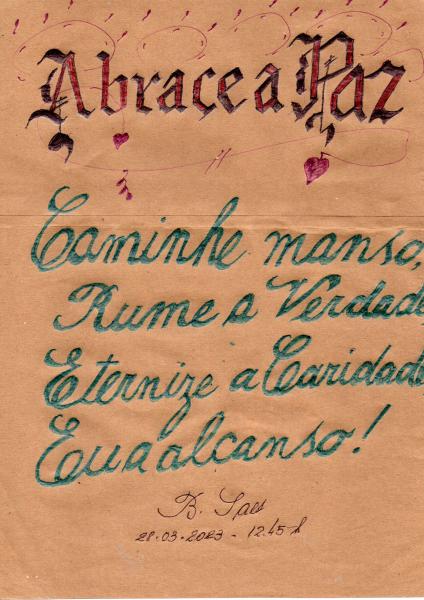 Abrace a Paz
Caminhe manso,
Rume a Verdade,
Eternize a Caridade,
Eu a alcanso!
B. Saes
28.03.2023 - 12.45 h